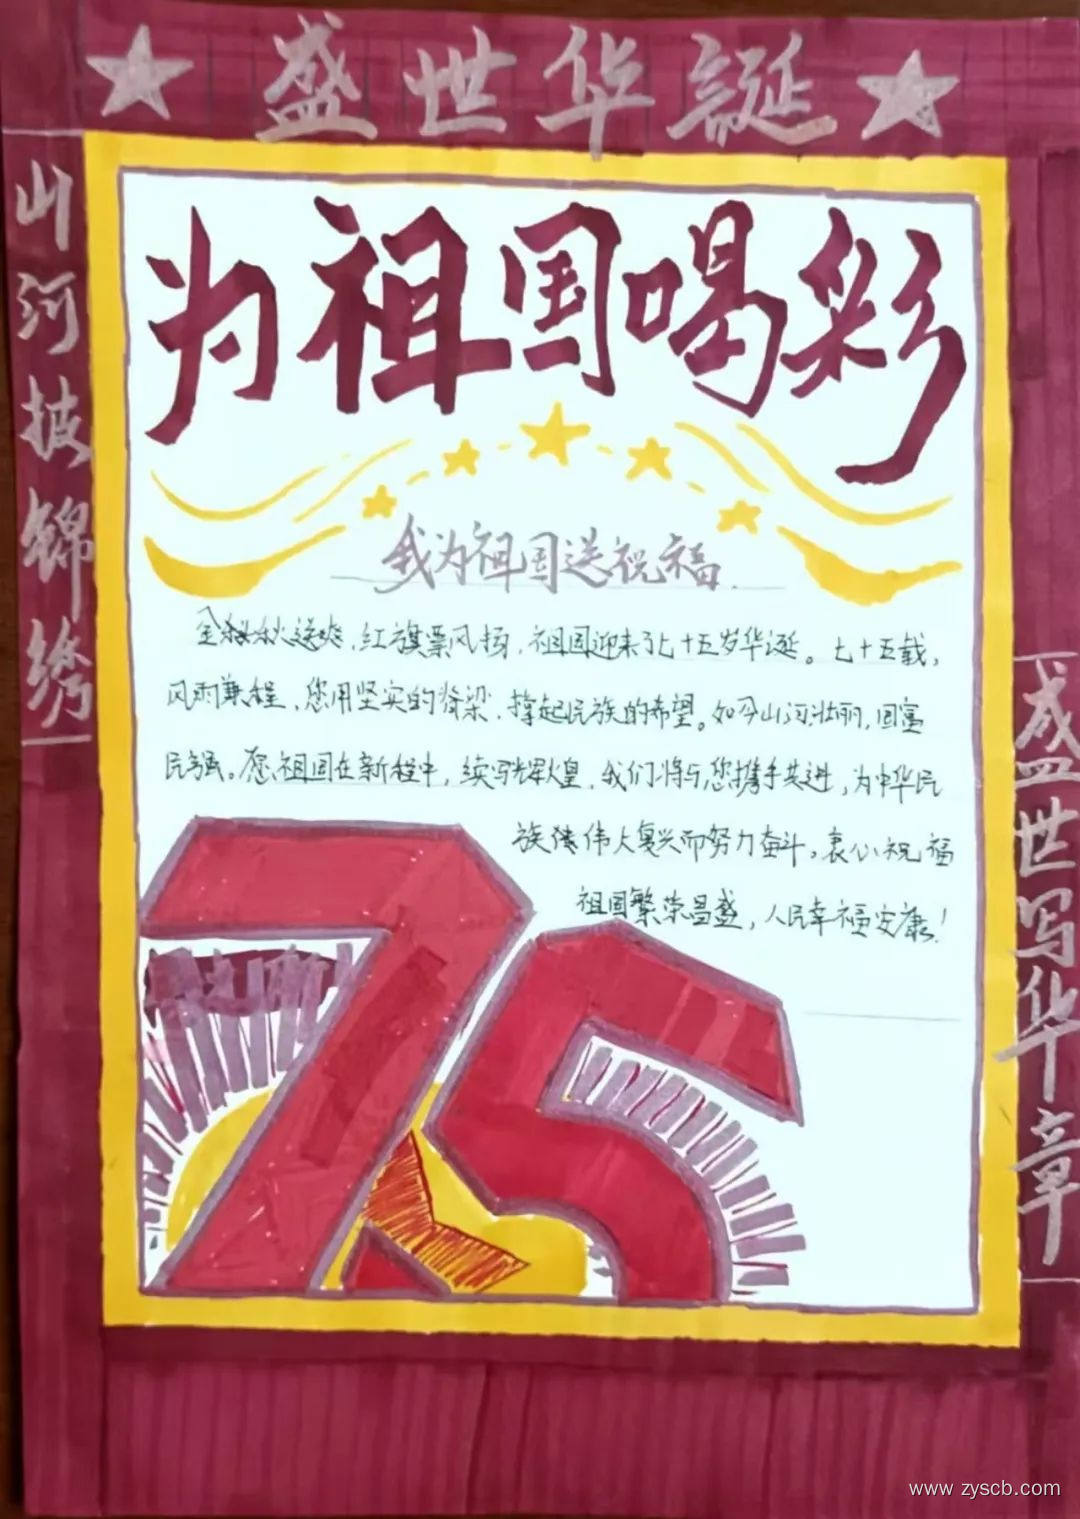 盛世华誕
山河披锦绣
为祖国喝彩
我为祖国送祝福
金秋送爽,红旗飘风扬,祖国迎来了七十五岁华诞。七十五载,
风雨兼程,您用坚实的脊梁,撑起民族的希望。如今山河壮丽,国富
民强。愿祖国在新程中,续写辉煌,我们将与您携手共进,为中华民
族伟大复兴而努力奋斗。衷心祝福
祖国繁荣昌盛,人民幸福安康!
75
盛世写华章
www.zyscb.com